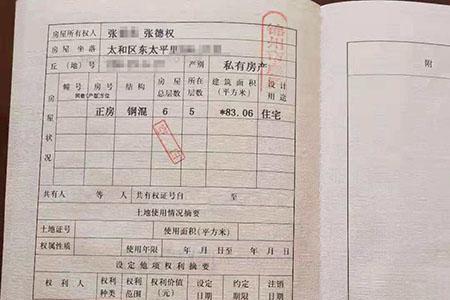 房屋所有权人 张 张德权
房屋坐落 太和区东太平里
丘(地)号 产别 私有房产
房屋状况
幢号 房号 结构 房屋总层数 所在层数 建筑面积(平方米) 设计用途
正房 钢混 6 5 *83.06 住宅
共有人 等 人 共有权证号自 至
土地使用情况摘要
土地证号 使用面积(平方米)
权属性质 使用年限 年 月 日至 年 月 日
设定他项权利摘要
权利人 权利种类 权利范围 权利价值(元) 设定日期 约定期限 注销日期
附